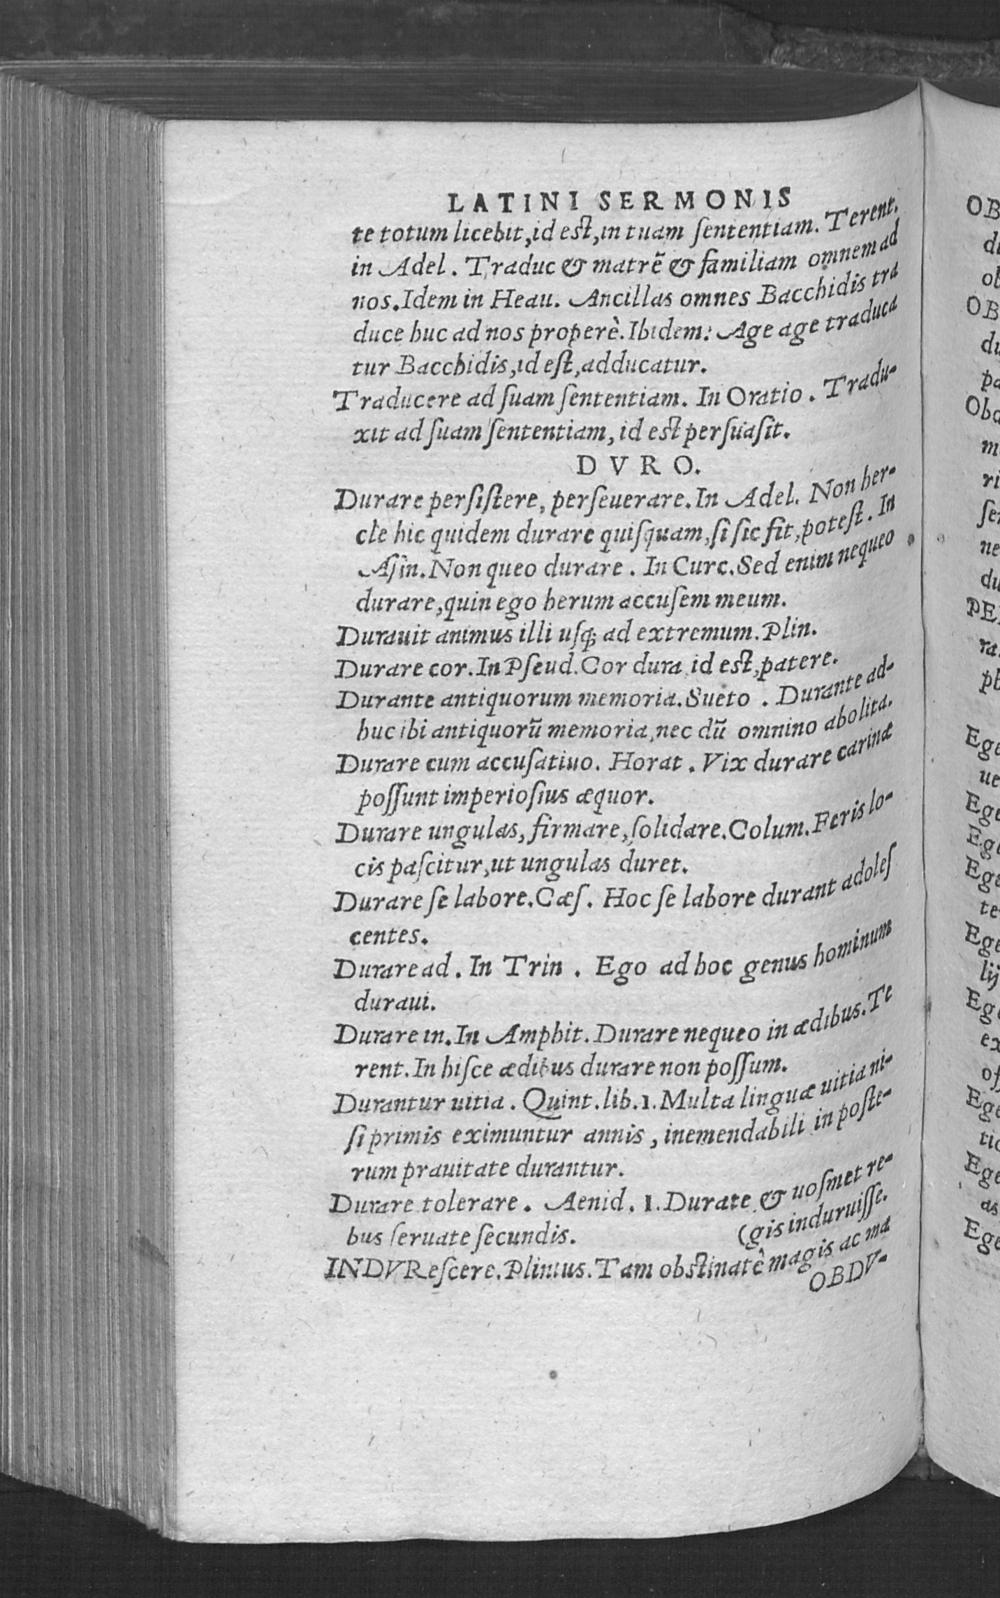 LATINI SERMONIS
te totum licebit, id est, in tuam sententiam. Terent.
in Adel. Traduc & matrẽ & familiam omnem ad
nos. Idem in Heau. Ancillas omnes Bacchidis tra
duce huc ad nos properè. Ibidem: Age age traduca
tur Bacchidis, id est, adducatur.
Traducere ad suam sententiam. In Oratio. Tradu-
xit ad suam sententiam, id est persuasit.
DVRO.
Durare persistere, perseuerare. In Adel. Non her-
cle hic quidem durare quisquam, si sic fit, potest. In
Asin. Non queo durare. In Curc. Sed enim nequeo
durare, quin ego herum accusem meum.
Durauit animus illi usq; ad extremum. Plin.
Durare cor. In Pseud. Cor dura id est, patere.
Durante antiquorum memoria. Sueto. Durante ad-
huc ibi antiquorũ memoria, nec dũ omnino abolita.
Durare cum accusatiuo. Horat. Vix durare carinæ
possunt imperiosius æquor.
Durare ungulas, firmare, solidare. Colum. Feris lo-
cis pascitur, ut ungulas duret.
Durare se labore. Cæs. Hoc se labore durant adoles
centes.
Durare ad. In Trin. Ego ad hoc genus hominum
duraui.
Durare in. In Amphit. Durare nequeo in ædibus. Te
rent. In hisce ædibus durare non possum.
Durantur uitia. Quint. lib. 1. Multa linguæ uitia ni-
si primis eximuntur annis, inemendabili in poste-
rum prauitate durantur.
Durare tolerare. Aenid. 1. Durate & uosmet re-
bus seruate secundis. (gis induruisse.
INDVRescere. Plinius. Tam obstinatè magis ac ma
OBDV-
OB
ob
OB
du
pa
Obd
m
ri
ser
ne
du
PE
ra
Ege
ue
Ege
Ege
Ege
te
Ege
lij
Ege
ex
of
Ege
tio
Ege
as
Ege